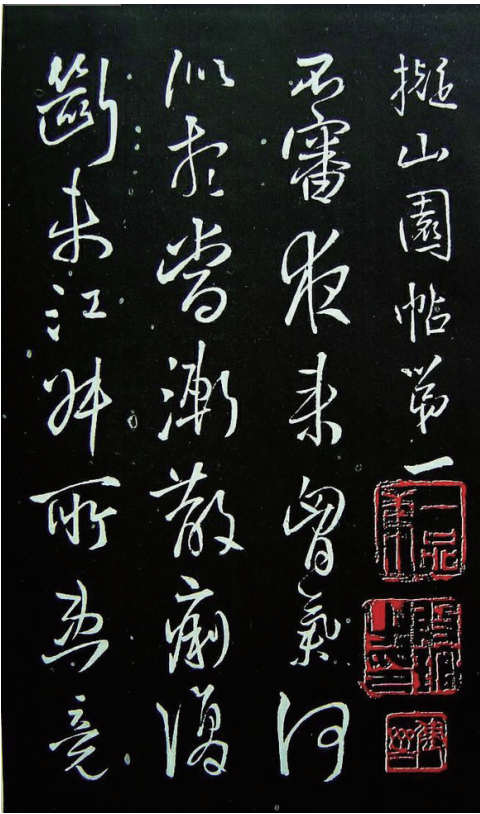 擬山園帖第一
不審夜來胷氣何
似想當漸散痢復
斷未江姊所患竟